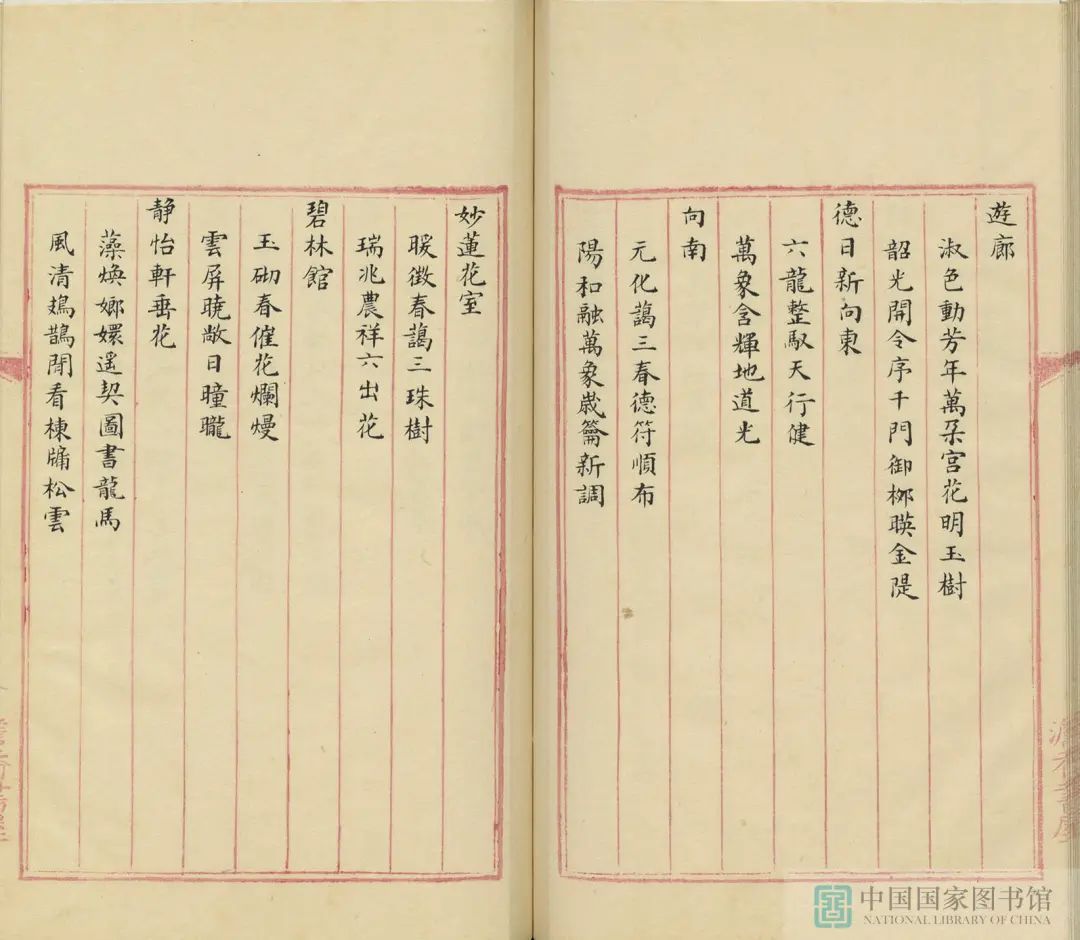 遊廊
淑色動芳年萬朶宮花明玉樹
韶光開令序千門御桞暎金隄
德日新向東
六龍整馭天行健
萬象含輝地道光
向南
元化藹三春德符順布
陽和融萬象歲籥新調
妙蓮花室
暖徵春藹三珠樹
瑞兆農祥六出花
碧林館
玉砌春催花爛熳
雲屏曉敞日曈曨
静怡軒垂花
藻煥嫏嬛遥契圖書龍馬
風清鳷鵲閒看棟牖松雲
中国国家图书馆
NATIONAL LIBRARY OF CHINA